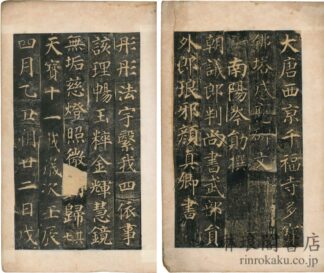 大唐西京千福寺多寶
佛塔感應碑文
南陽岑勛撰
朝議郎判尚書武部員
外郎琅邪顏真卿書
彤彤法宇繫我四依事
該理暢玉粹金輝慧鏡
無垢慈燈照微 歸
天寶十一載歲次壬辰
四月乙丑朔廿二日戊
琅閣書店
rinrokaku.co.jp